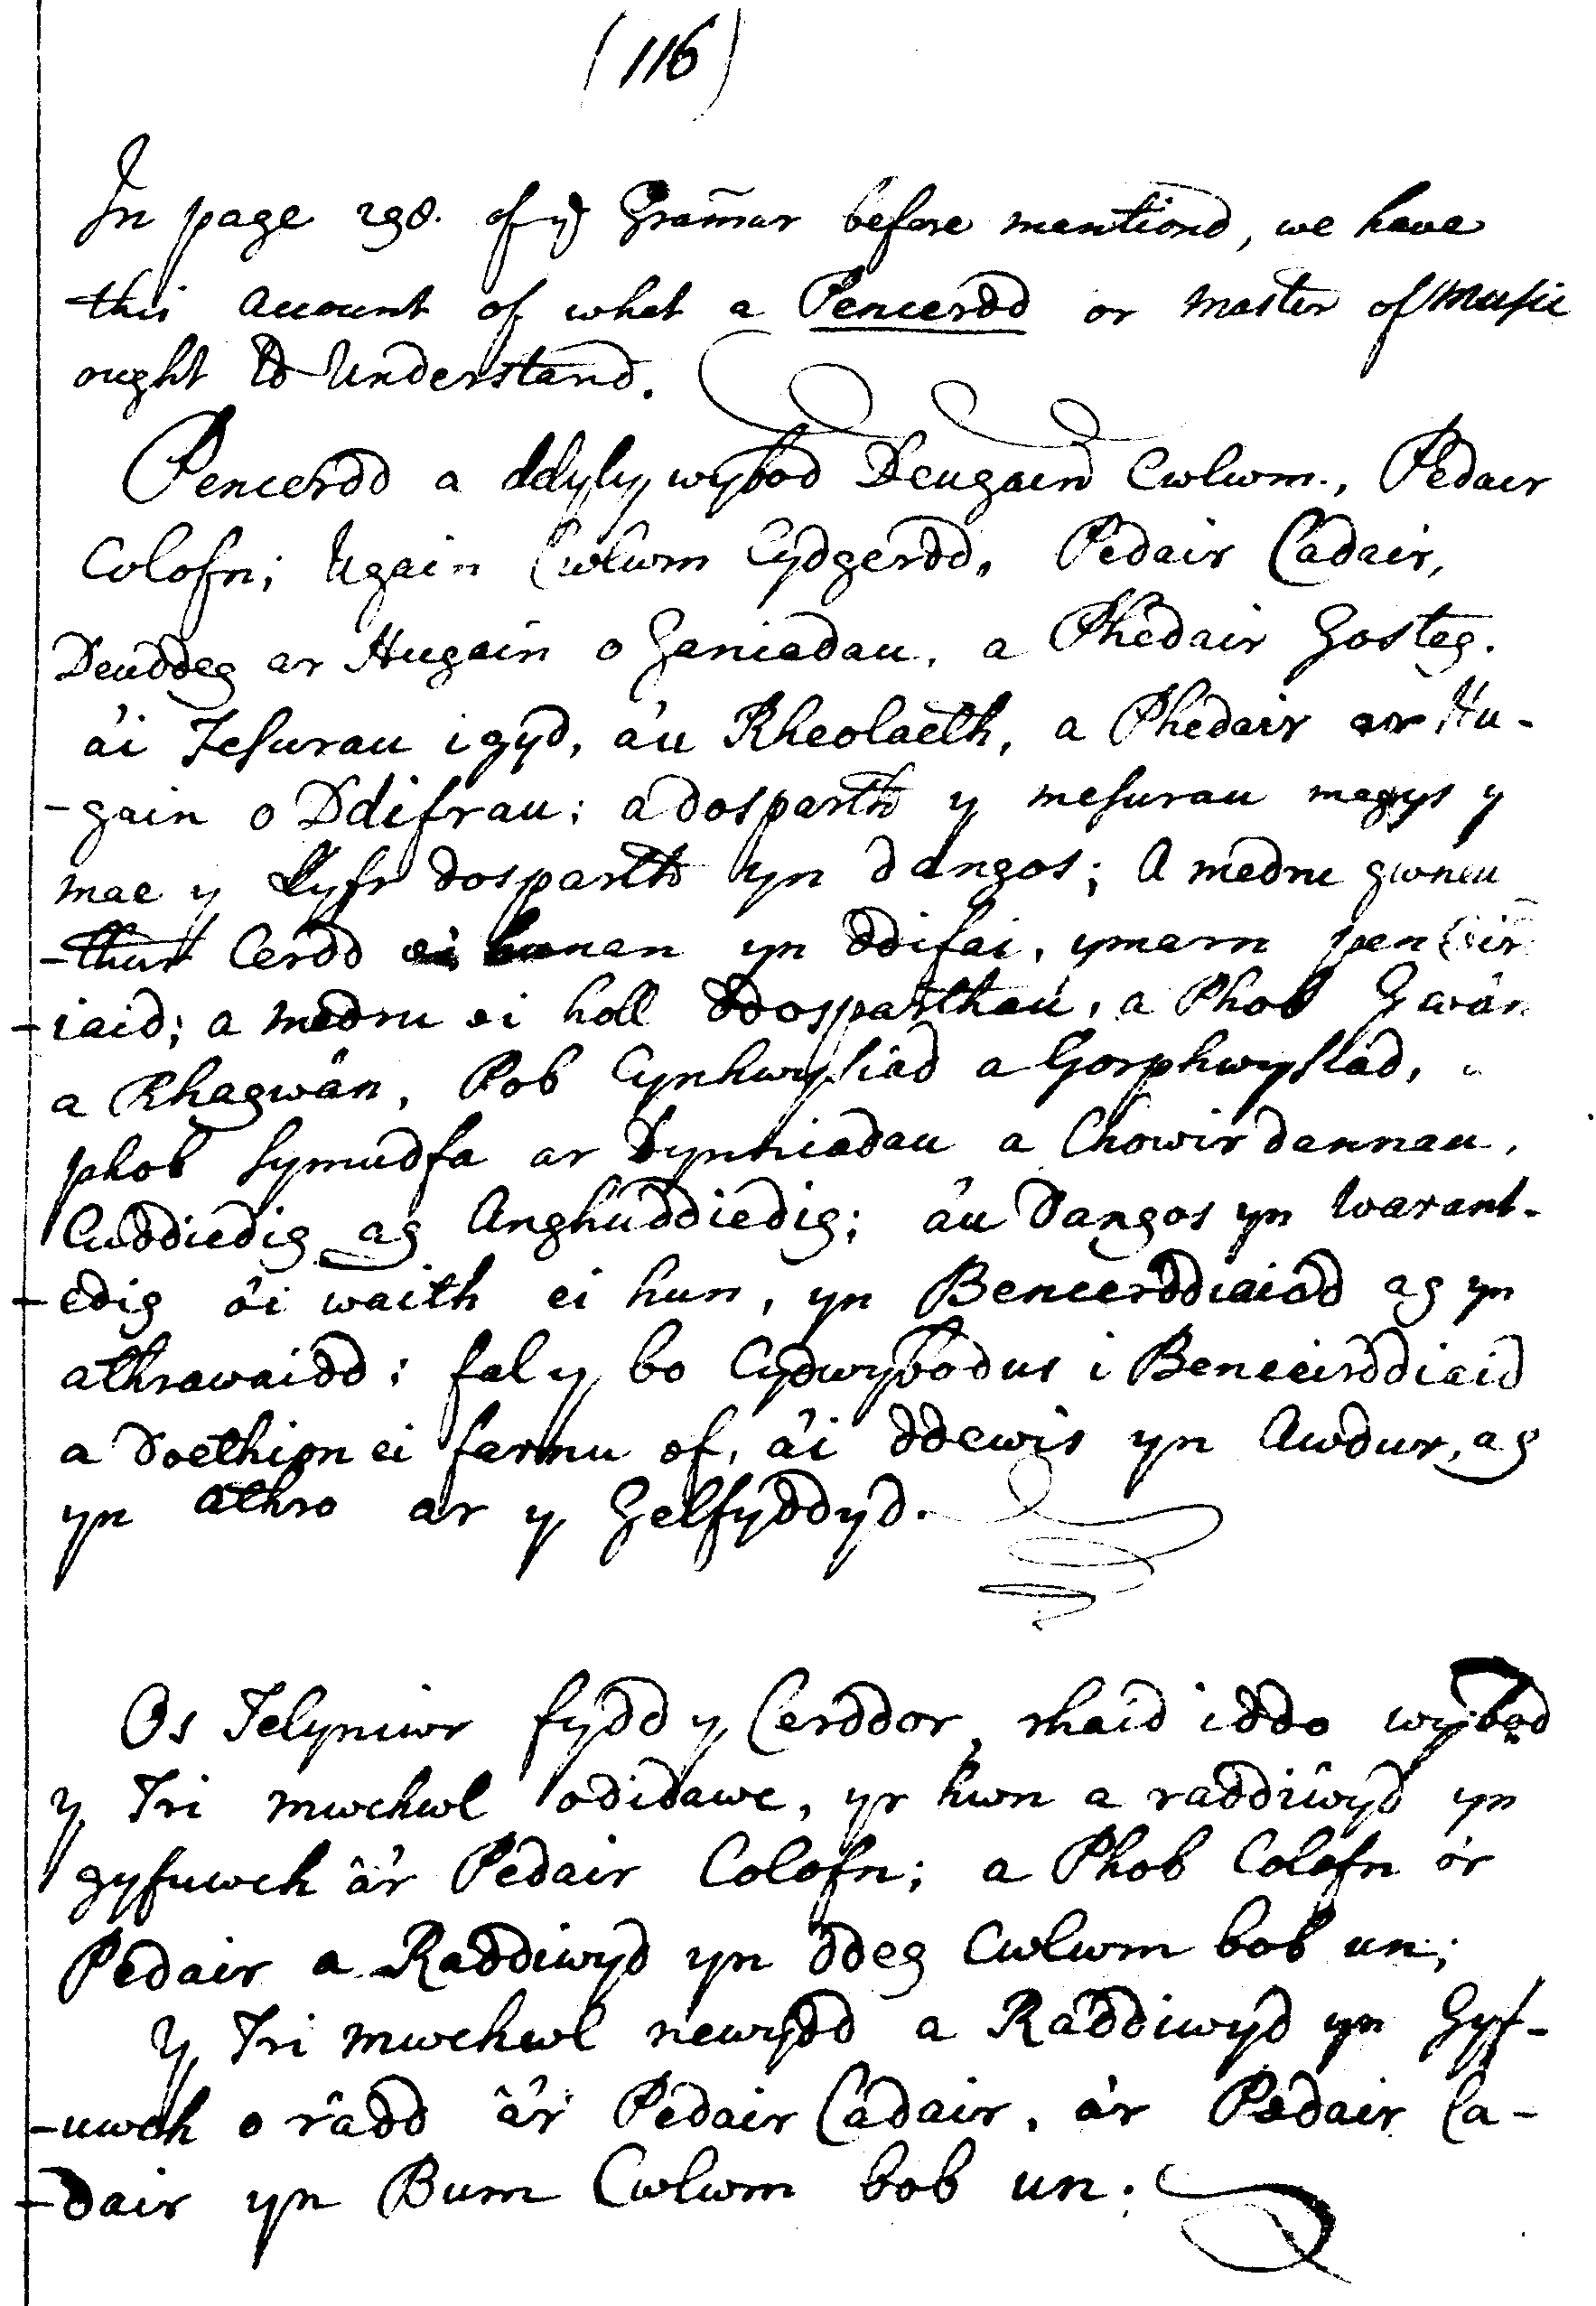 (116)
In page 298. of yͤ Gram̃ar before mentiond, we have
this account of what a Pencerdd or Master of Musie
ought to Understand.
Pencerdd a ddyly wybod Deugain Cwlwm., Pedair
Colofn; Ugain Cwlwm Cydgerdd, Pedair Cadair,
Deuddeg ar Hugain o Ganiadau, a Phedair Gosteg.
a'i Fesurau i gyd, a'u Rheolaeth, a Phedair ar Hu-
-gain o Ddifrau: a dosparth y mesurau megys y
mae y Llyfr dosparth yn dangos; A medru gwneu
-thur Cerdd ei hunan yn ddifai, ymarn penceir
-iaid; a medru ei holl ddosparthau, a Phob Gwân
a Rhagwân, Pob Cynhwysiad a Gorphwysiad, a
phob symudfa ar Dynniadau a Chowir dannau,
Cuddiedig ag Anghuddiedig; a'u Dangos yn warant-
-edig o'i waith ei hun, yn Bencerddiaidd ag yn
athrawaidd: fal y bo Cydwybodus i Benceirddiaid
a Doethion ei farnu ef, a'i ddewis yn Awdur, ag
yn athro ar y Gelfyddyd.
Os Telyniwr fydd y Cerddor, rhaid iddo wybod
y Tri mwchwl odidawc, yr hwn a raddiwyd yn
gyfuwch â'r Pedair Colofn; a Phob Colofn o'r
Pedair a Raddiwyd yn ddeg Cwlwm bob un;
Y Tri mwchwl newydd a Raddiwyd yn Gyf-
-uwch o râdd â'r Pedair Cadair, a'r Pedair Ca-
-dair yn Bum Cwlwm bob un.